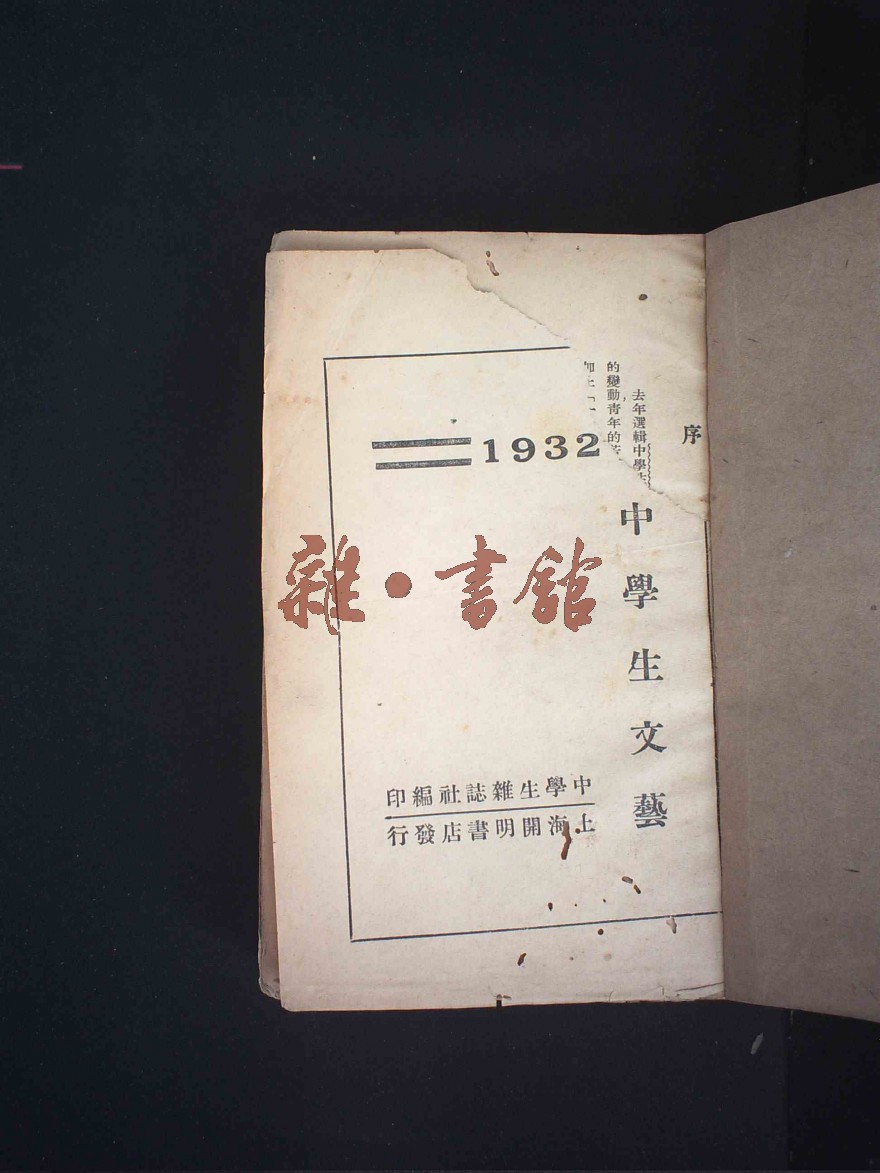 序
去年選輯中學生
的變動，青年的
加上「一
1932
中學生文藝
雜·書館
中學生雜誌社編印
上海開明書店發行